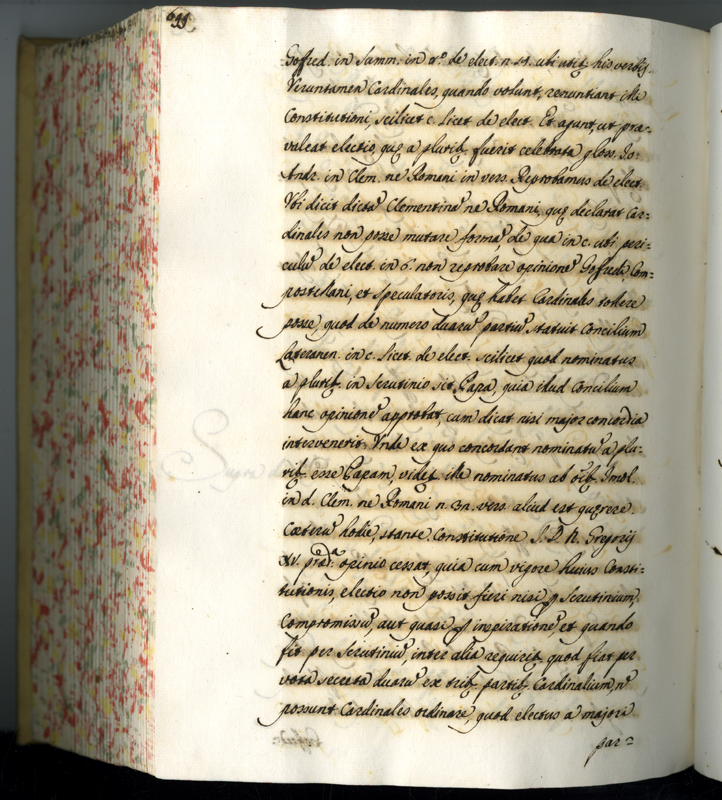 Goffred. in Summ. in tt.º de elect. n. 11. ubi utitꝫ his verbis.
Veruntamen Cardinales, quando volunt, renuntiant isti
Constitutioni, scilicet c. Licet de elect. Et agunt, ut præ-
valeat electio, quę a pluribꝫ fuerit celebrata glos. Io:
Andr. in Clem. ne Romani in vers. Reprobamus de elect.
Vbi dicit dictã Clementinã ne Romani, quę declarat Car=
dinales non posse mutare formã, de qua in c. ubi peri=
culũ de elect. in 6. non reprobare opinionẽ Goffredi, Com=
postellani, et Speculatoris, quę habet Cardinales tollere
posse, quod de numero duarũ partiũ statuit Concilium
Lateranen. in c. Licet. de elect. scilicet quod nominatus
a pluribꝫ in scrutinio sit Papa, quia illud Concilium
hanc opinionẽ approbat, cum dicat nisi maior concordia
intervenerit. Vnde ex quo concordant nominatũ a plu=
ribꝫ esse Papam, videtꝫ ille nominatus ab oĩbꝫ Imol.
in d. Clem. ne Romani n. 32. vers. aliud est quęrere.
Cæterũ hodie, stante Constitutione S. D. N. Gregorij
XV. prædᵃ. opinio cessat, quia cum vigore huius Consti=
tutionis, electio non possit fieri nisi ꝑ scrutinium,
Compromissũ, aut quasi ꝑ inspirationẽ, et quando
fit per scrutiniũ, inter alia requiritꝫ quod fiat per
vota secreta duarũ ex tribꝫ partibꝫ Cardinalium, nõ
possunt Cardinales ordinare, quod electus a maiori
par=